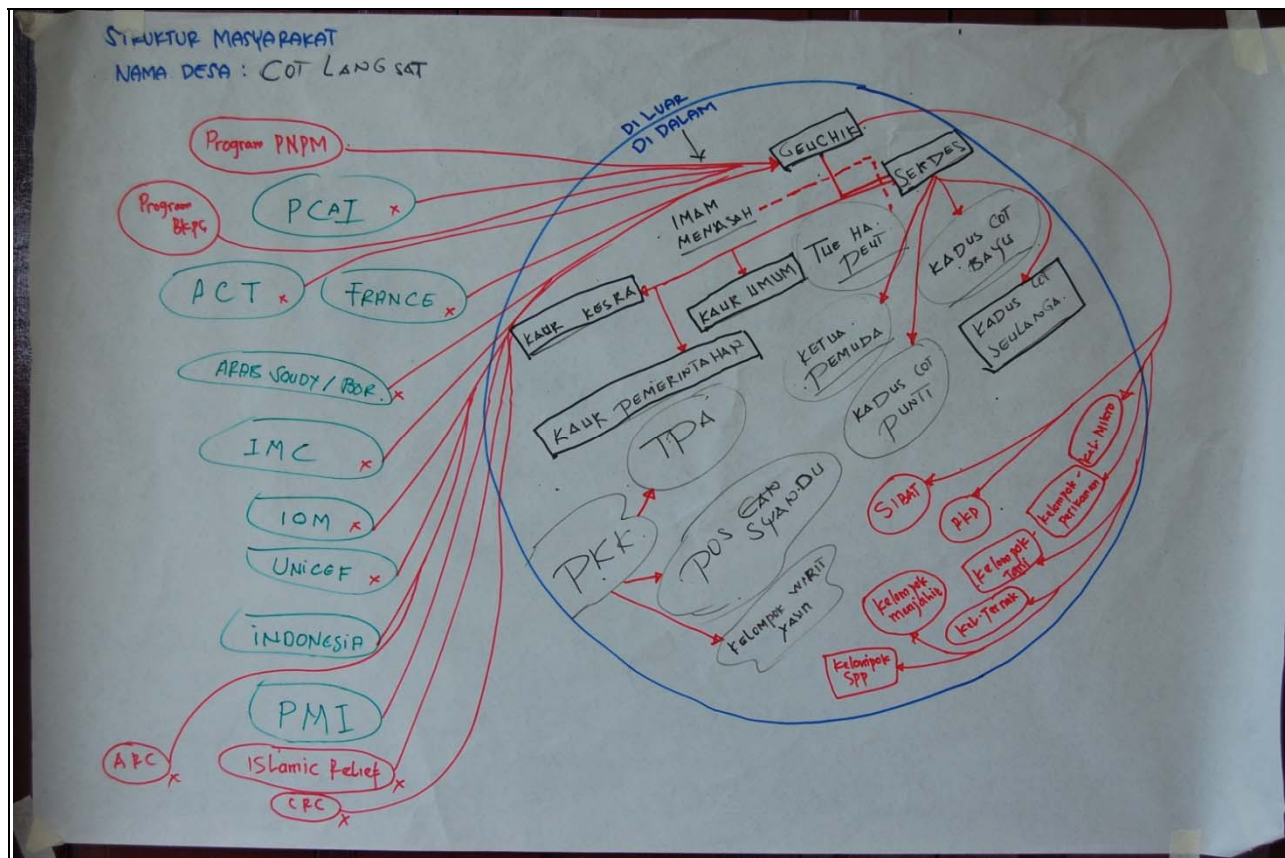 STRUKTUR MASYARAKAT
NAMA DESA : COT LANGSAT
DI LUAR
DI DALAM
Program PNPM
PCAI x
Program
BKPG
ACT x
FRANCE x
ARAB SOUDY / BOR. x
IMC x
IOM x
UNICEF x
INDONESIA
PMI
ARC x
ISlamic Relief x
CRC x
GEUCHIK
SEKDES
IMAM
MENASAH
TUE HA.
PEUT
KADUS COT
BAYU
KADUS COT
SEULANGA.
KAUR KESRA
KAUR UMUM
KAUR PEMERINTAHAN
KETUA
PEMUDA
KADUS COT
PUNTI
TPA
PKK
POS
SYANDU
KELOMPOK WIRIT
YASIN
SIBAT
PKD
Kel. Mikro
Kelompok -
perikanan
Kelompok
Tani
Kel. Ternak
Kelompok
menjahit
Kelompok
SPP